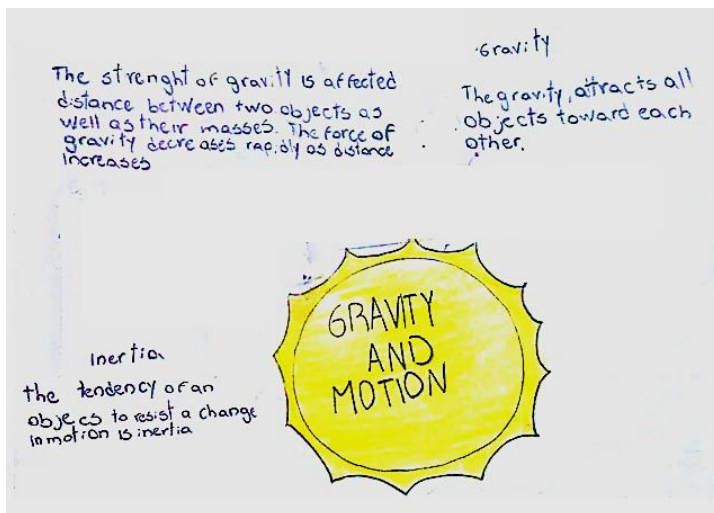 The strenght of gravity is affected
distance between two objects as
well as their masses. The force of
gravity decreases rapidly as distance
increases
Gravity
The gravity, attracts all
objects toward each
other.
GRAVITY
AND
MOTION
Inertia
the tendency of an
objecs to resist a change
in motion is inertia